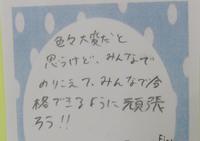 色々大変だと
思うけど、みんなで
のりこえて、みんなで合
格できるように頑張
ろう!!